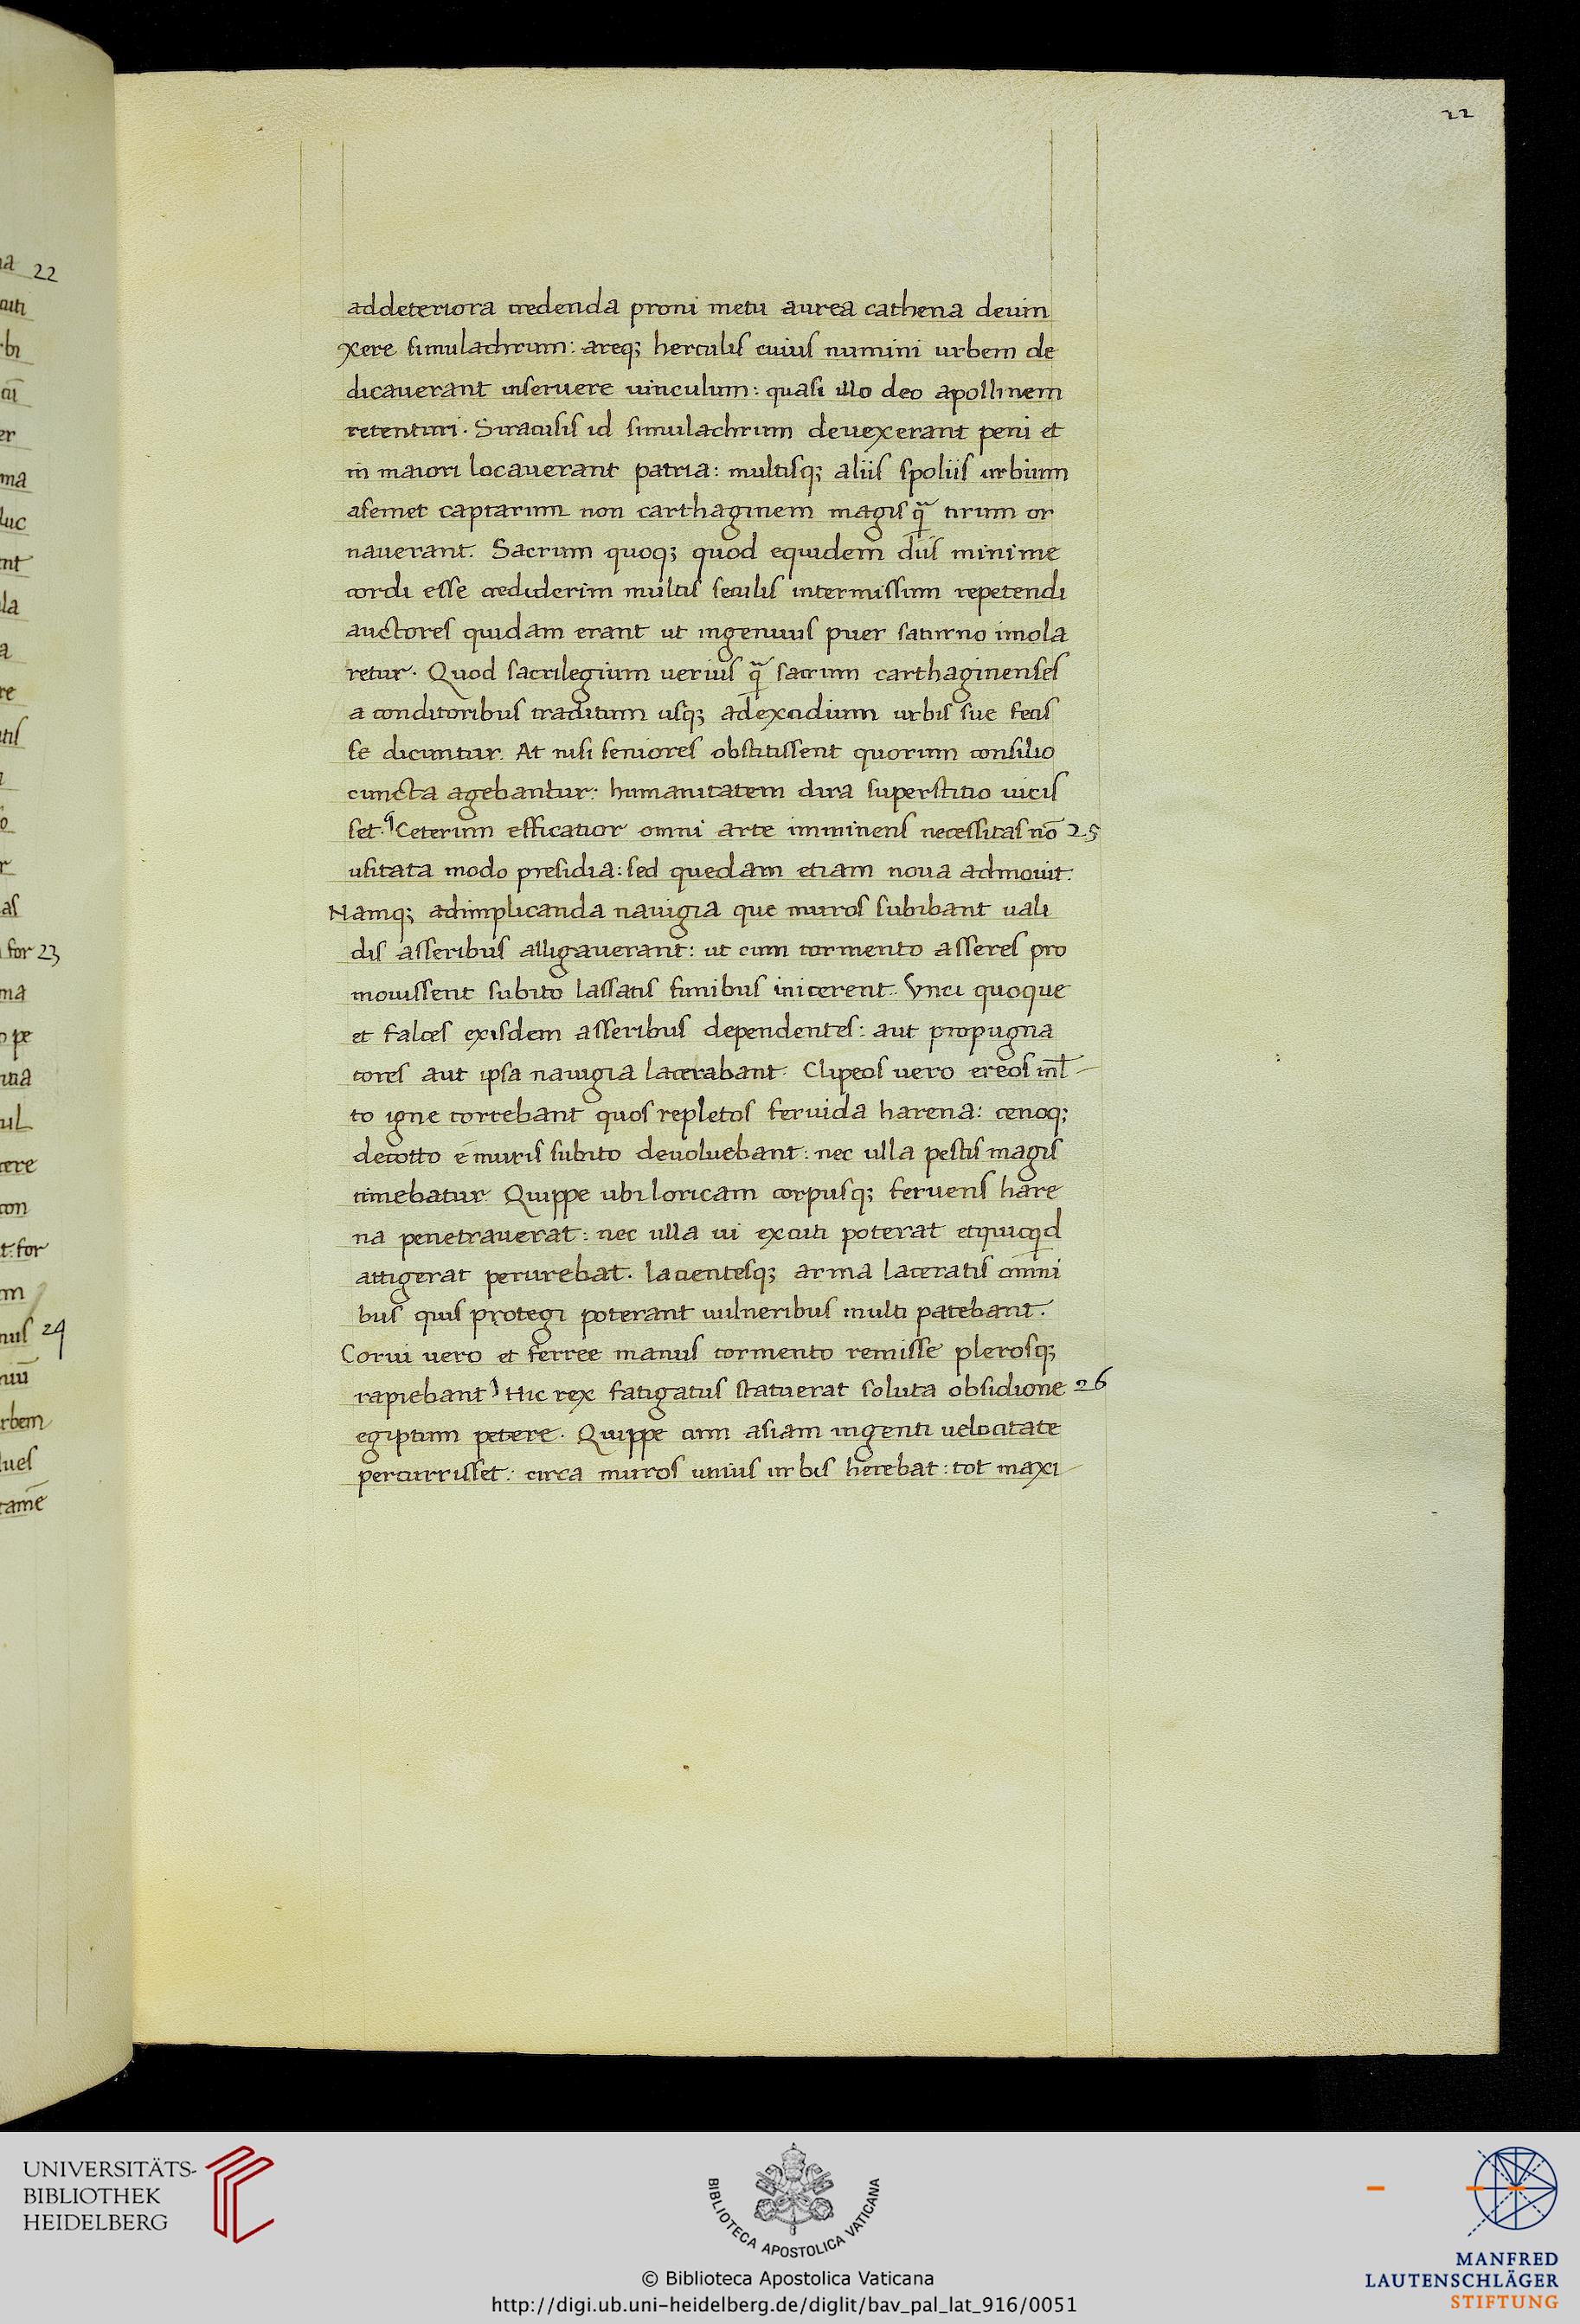 22
addeteriora credenda proni metu aurea cathena deuin
xere simulachrum: areq; herculis cuius numini urbem de
dicauerant inseruere uinculum: quasi illo deo apollinem
retenturi. Siracusis id simulachrum deuexerant peni et
in maiori locauerant patria: multisq; aliis spoliis urbium
asemet captarum non carthaginem magis q̃ tirum or
nauerant. Sacrum quoq; quod equidem diis minime
cordi esse crediderim multis seculis intermissum repetendi
auctores quidam erant ut ingenuus puer saturno imola
retur. Quod sacrilegium uerius q̃ sacrum carthaginenses
a conditoribus traditum usq; adexcidium urbis sue fecis
se dicuntur. At nisi seniores obstitissent quorum consilio
cuncta agebantur: humanitatem dira superstitio uicis
set. Ceterum efficatior omni arte imminens necessitas nō 25
usitata modo presidia: sed quedam etiam noua admouit.
Namq; adimplicanda nauigia que muros subibant uali
dis asseribus alligauerant: ut cum tormento asseres pro
mouissent subito lassatis funibus inicerent. Vnci quoque
et falces exisdem asseribus dependentes: aut propugna
tores aut ipsa nauigia lacerabant. Clipeos uero ereos ml̄
to igne torrebant quos repletos feruida harena: cenoq;
decotto e muris subito deuoluebant: nec ulla pestis magis
timebatur. Quippe ubi loricam corpusq; feruens hare
na penetrauerat: nec ulla ui excuti poterat etquicq̇d
attigerat perurebat. Iacientesq; arma laceratis omni
bus quis protegi poterant uulneribus multi patebant.
Corui uero et ferree manus tormento remisse plerosq;
rapiebant Hic rex fatigatus statuerat soluta obsidione 26
egiptum petere. Quippe cum asiam ingenti uelocitate
percurrisset: circa muros unius urbis herebat: tot maxi
22
for 23
24
UNIVERSITÄTS-
BIBLIOTHEK
HEIDELBERG
BIBLIOTECA APOSTOLICA VATICANA
© Biblioteca Apostolica Vaticana
http://digi.ub.uni-heidelberg.de/diglit/bav_pal_lat_916/0051
MANFRED
LAUTENSCHLÄGER
STIFTUNG